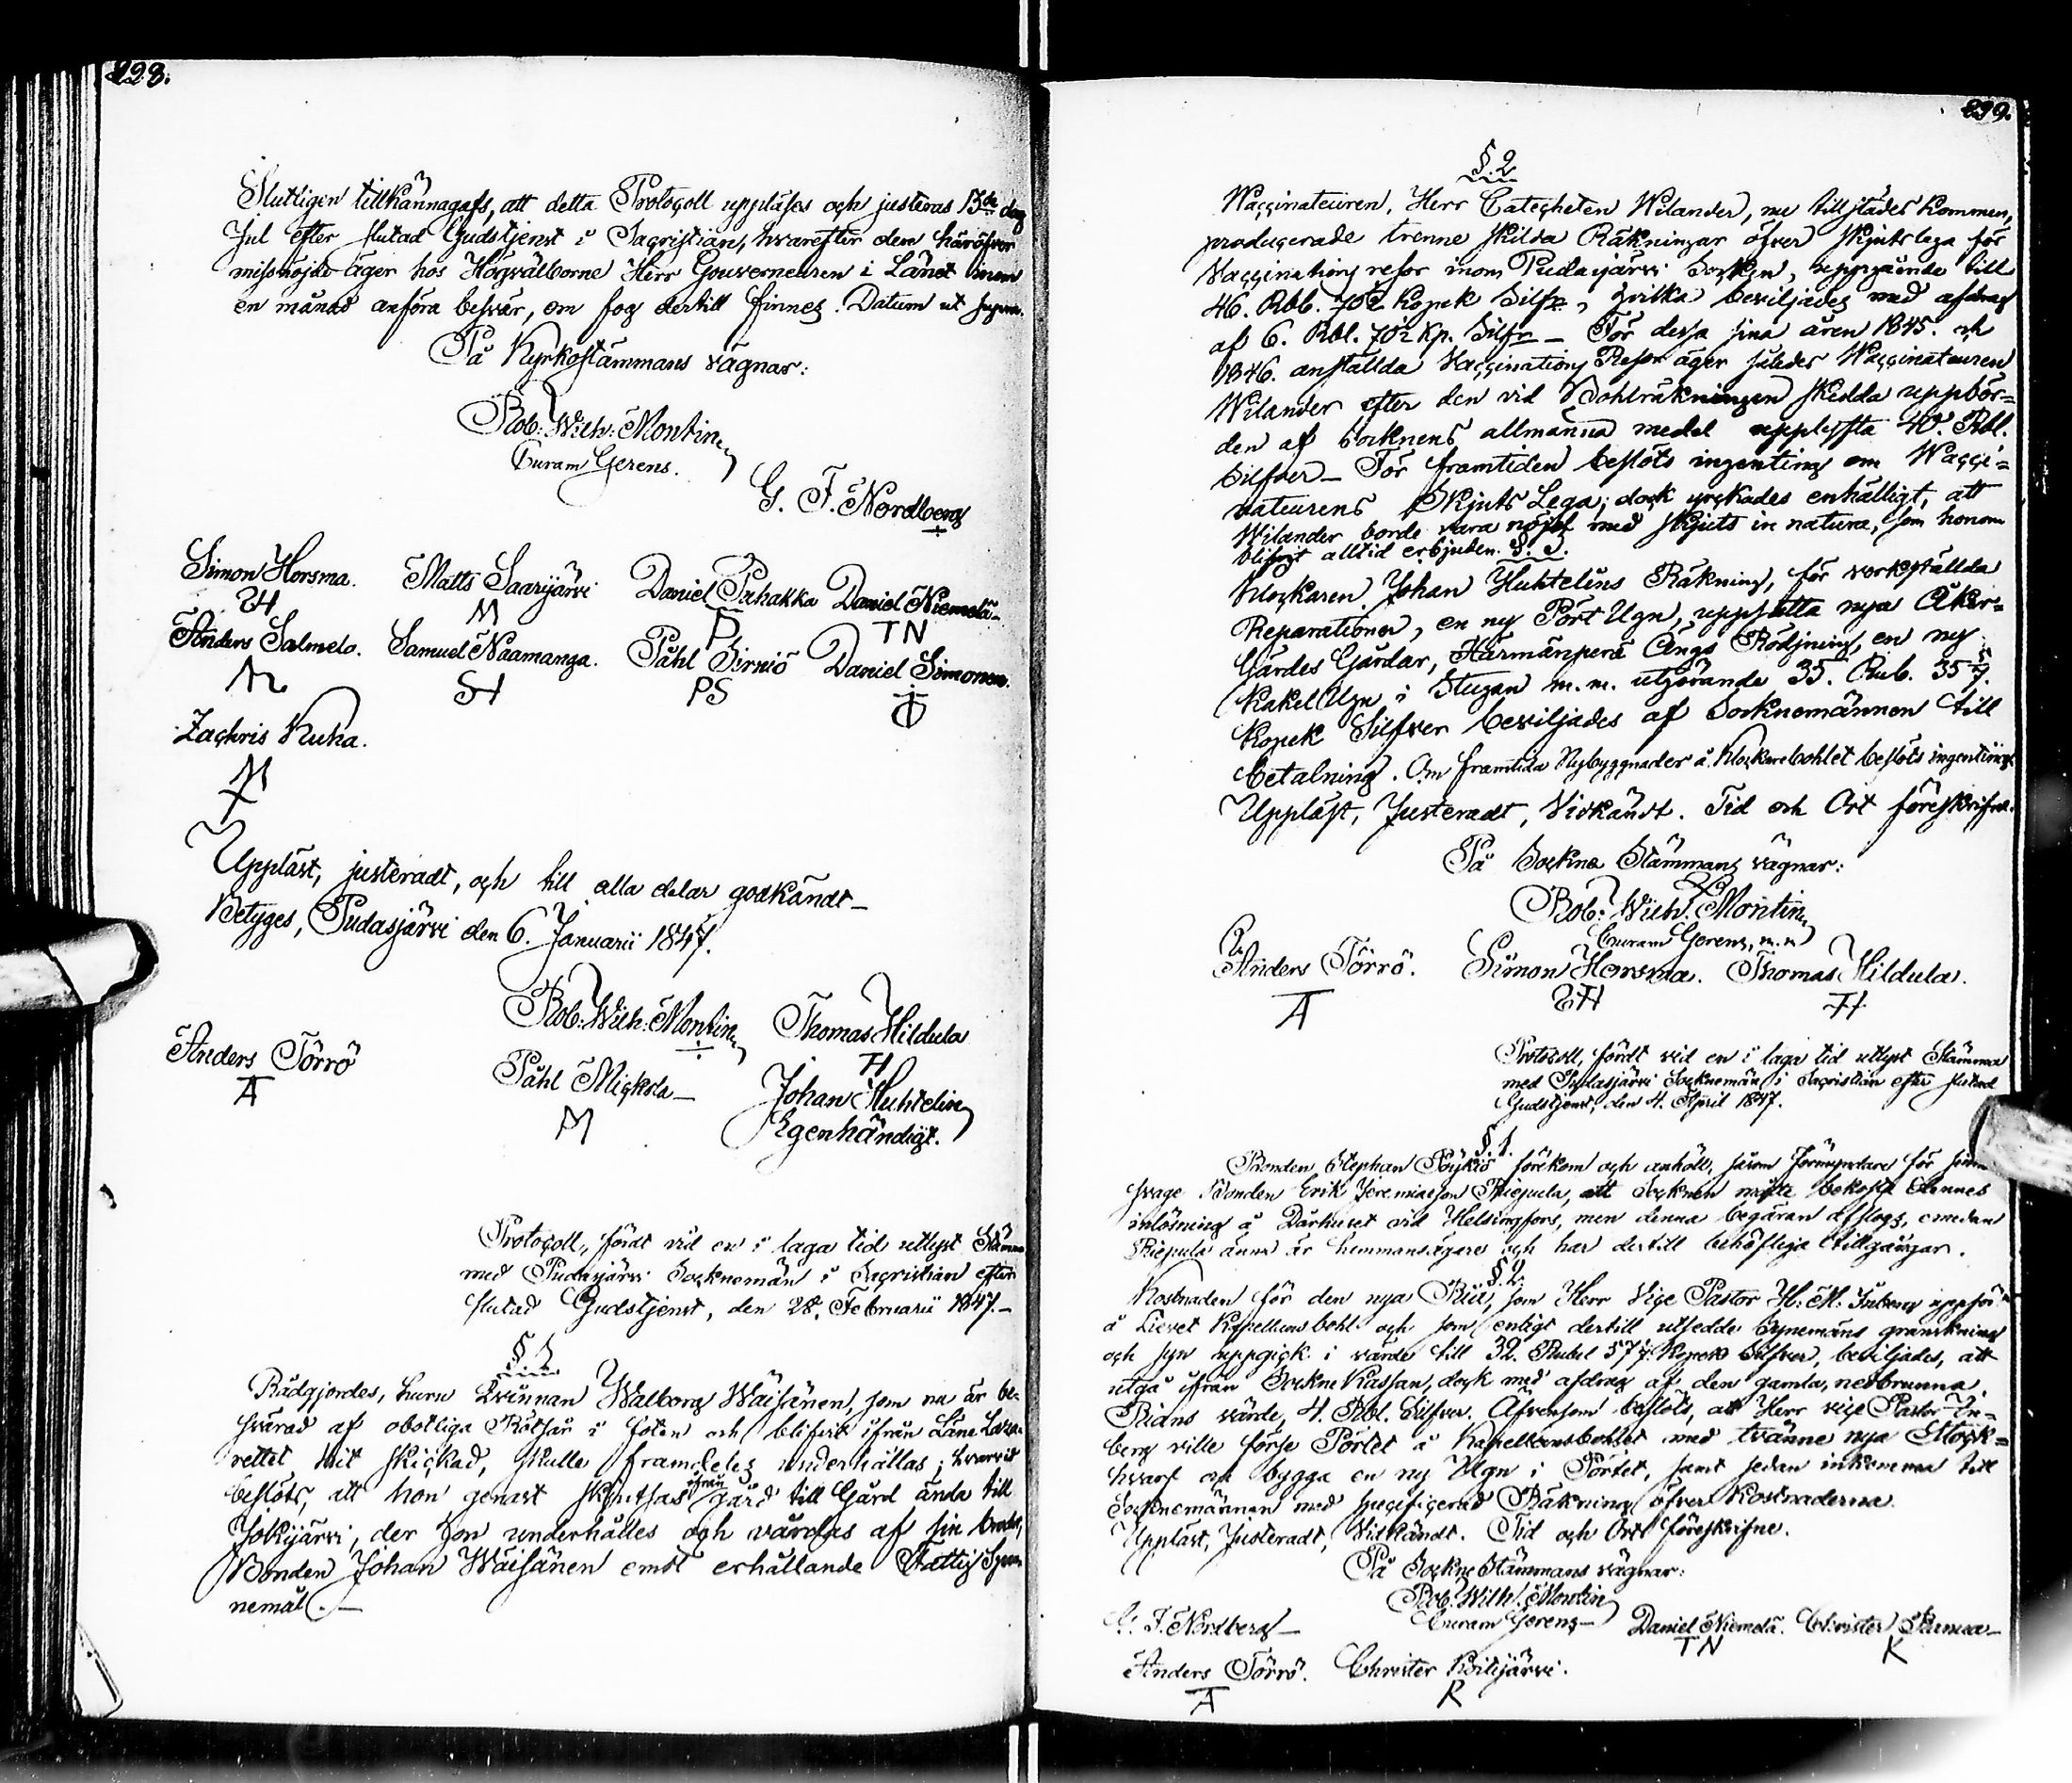 298.
Slutligen tillkännagafs, att detta Protocoll uppläses och justeras 13de dag
Jul efter slutad Gudstjenst i Sacristian, hvarefter den häröfver
missnöjde äger hos Högvälborne Herr Gouverneuren i Länet inom
en månad anföra besvär, om fog dertill finnes. Datum ut supra.
På Kyrkostämmans vägnar:
Rob: Wilh: Montin
Curam Gerens.
G. F. Nordberg
Simon Horsma. Matts Saarijärvi Daniel Puhakka Daniel Niemelä
SH M P TN
Anders Salmelo. Samuel Naamanga. Påhl Sirniö Daniel Simonen.
SH PS
Zachris Kuha.
Uppläst, justeradt, och till alla delar godkändt _
Betyges, Pudasjärvi den 6. Januarii 1847.
Rob: Wilh: Montin Thomas Hildula
TH
Anders Törrö Påhl Mickola _ Johan Huhtelin
A M Egenhändigt.
Protocoll, fördt vid en i laga tid utlyst Stämma
med Pudasjärvi Socknemän i Sacristian efter
slutad Gudstjenst, den 28. Februarii 1847. _
§. 1.
Rådgjordes, huru Qvinnan Walborg Wäisänen, som nu är be-
svärad af obotliga Rötsår i foten och blifvit ifrån Läns Laza-
rettet hit skickad, skulle framdeles underhållas; hvarvid
beslöts, att hon genast skjutsas ifrån gård till Gård ända till
Jokijärvi, der hon underhålles och vårdas af sin broder,
Bonden Johan Wäisänen emot erhållande Fattig Spann
nemål. _
299.
§. 2
Waccinateuren, Herr Catecheten Wilander, nu tillstädes kommen,
producerade trenne skilda Räkningar öfver skjutslega för
Vaccinations resor inom Pudasjärvi Socken, uppgående till
46. Rbl. 70 2/7 Kopek Silfr, hvilka beviljades med afdrag
af 6. Rbl. 70 2/7 Kp. Silfr _ För dessa sina åren 1845. och
1846. anställda Vaccinations Resor äger således Waccinateuren
Wilander efter den vid Bohlräkningen skedda uppbör-
den af Socknens allmänna medel upplyfta 40. Rbl.
Silfver _ För framtiden beslöts ingenting om Wacci-
nateurens Skjuts Lega; dock yrckades enhälligt, att
Wilander borde vara nöjd med skjuts in natura, som honom
blifvit alltid erbjuden. §. 3.
Klockaren Johan Huhtelins Räkning, för verkställda
Reparationer, en ny Pört Ugn, uppsatta nya Åker-
Gärdes Gårdar, Härmänperä Ängs Rödjning, en ny
Kakel Ugn i Stugan m. m. utgörande 35. Rub. 35 5/7.
Kopek Silfver beviljades af Socknemännen till
betalning. Om framtida Nybyggnader å Klockarebohlet beslöts ingenting.
Uppläst, Justeradt, Vidkändt. Tid och Ort föreskrifne.
På Sockne Stämmans vägnar:
Rob: Wilh: Montin
Curam Gerens, m. m
Anders Törrö. Simon Horsma. Thomas Hildula.
A SH TH
Protocoll, fördt vid en i laga tid utlyst Stämma
med Pudasjärvi Socknemän i Sacristian efter slutad
Gudstjenst, den 4. April 1847.
§. 1.
Bonden Stephan Pöykiö förekom och anhöll, såsom Förmyndare för
svage Bonden Erik Jeremiasson Riepula, att Socknen måtte bekosta dennes
inlösning å Dårhuset vid Helsingfors, men denna begäran afslogs, emedan
Riepula ännu är hemmansägare och har dertill behöfliga tillgångar.
§. 2.
Kostnaden för den nya Rian, som Herr Vice Pastor H: M: Inberg uppfört
å Lievet Kapellansbohl och som enligt dertill utsedde Synemäns granskning
och syn uppgick i värde till 32. Rubel 57 1/7 Kopek Silfver, beviljades, att
utgå ifrån Sockne Kassan, dock med afdrag af den gamla, nedbrunna
Rians värde, 4. Rbl. Silfver. Äfvensom beslöts, att Herr vice Pastor In-
berg ville förse Pörtet å Kapellansbohlet med tvänne nya Stock-
hvarf och bygga en ny Ugn i Pörtet, samt sedan inkomma till
Socknemännen med specificerad Räkning öfver kostnaderna.
Uppläst, Justeradt, Vidkändt. Tid och Ort föreskrifne.
På Sockne Stämmans vägnar:
Rob: Wilh: Montin
G. F. Nordberg _ Curam Gerens _ Daniel Niemelä. Christer
TN K
Anders Törrö. Christer Koitijärvi.
A K